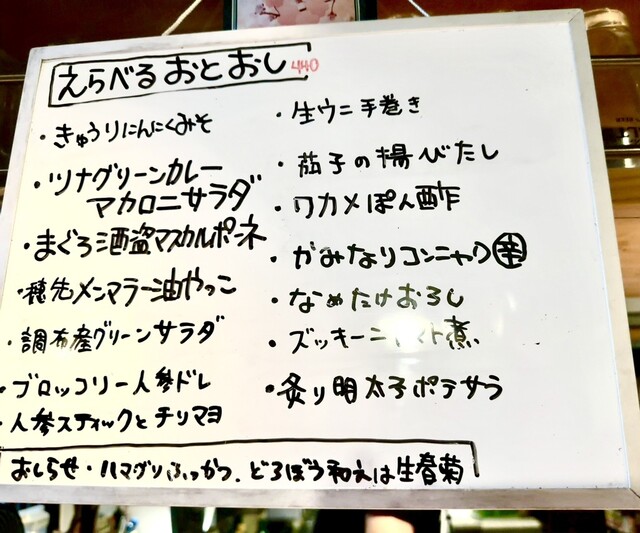 えらべるおとおし 440
・きゅうりにんにくみそ
・ツナグリーンカレー
マカロニサラダ
・まぐろ酒盗マスカルポーネ
・穂先メンマラー油やっこ
・調布産グリーンサラダ
・ブロッコリー人参ドレ
・人参スティックとチリマヨ
・生ウニ手巻き
・茄子の揚びたし
・ワカメぽん酢
・かみなりコンニャク辛
・なめたけおろし
・ズッキーニトマト煮
・炙り明太子ポテサラ
おしらせ・ハマグリふっかつ、どろぼう和えは生春菊